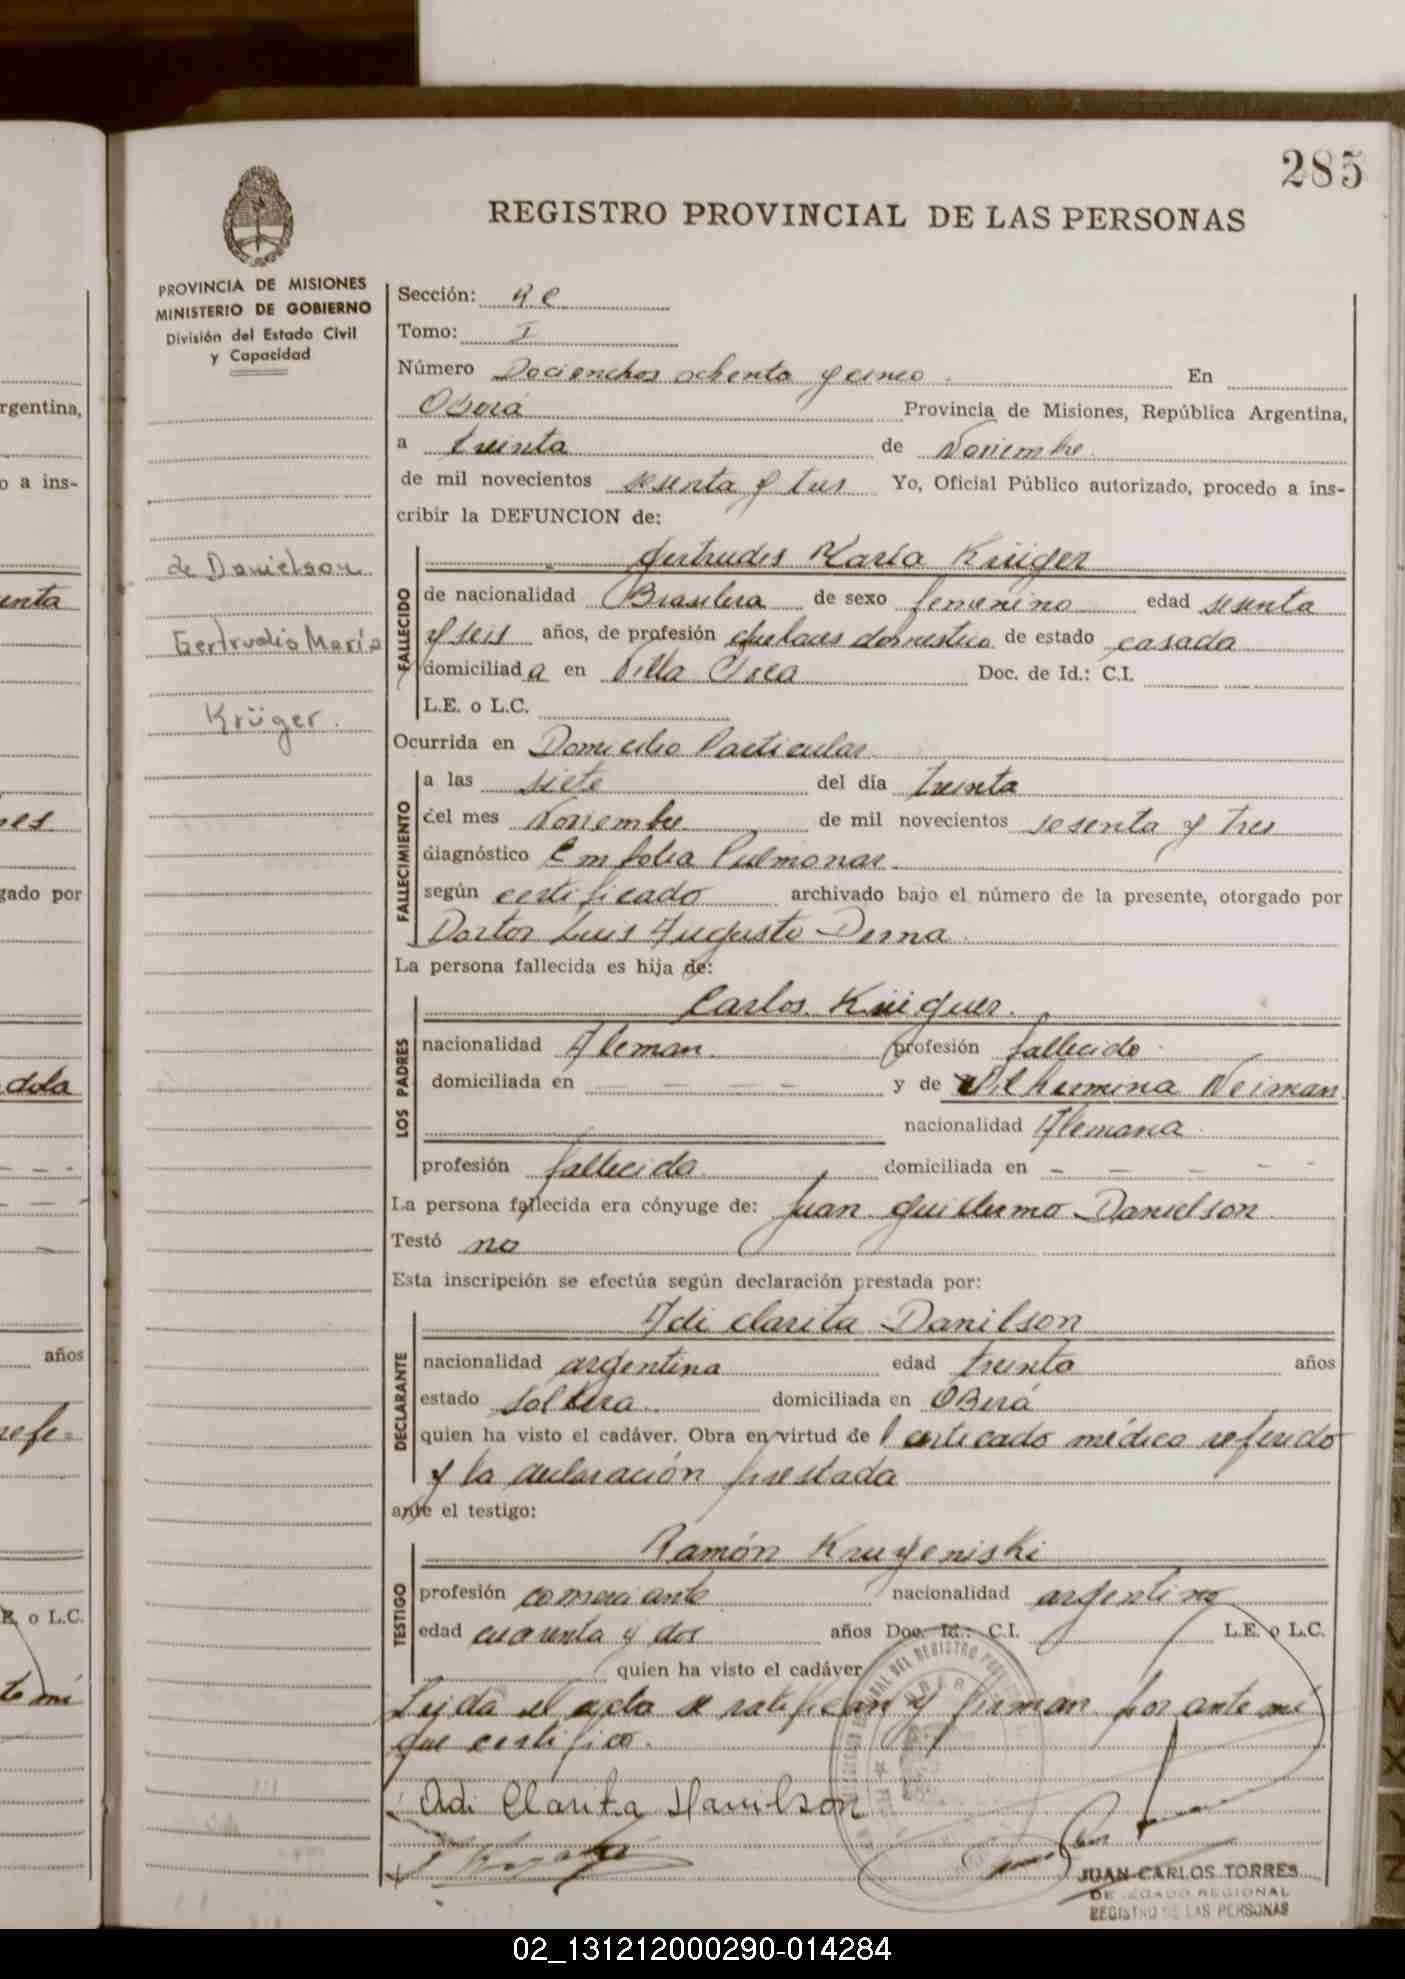 285
REGISTRO PROVINCIAL DE LAS PERSONAS
PROVINCIA DE MISIONES
MINISTERIO DE GOBIERNO
División del Estado Civil
y Capacidad
de Danielson
Gertrudis María
Krüger.
Sección:
Tomo: I
Número Docienchos ochenta y cinco. En
Oberá Provincia de Misiones, República Argentina,
a treinta de Noviembre
de mil novecientos sesenta y tres Yo, Oficial Público autorizado, procedo a ins-
cribir la DEFUNCION de:
FALLECIDO
Gertrudis María Krüger
de nacionalidad Brasilera de sexo femenino edad sesenta
y seis años, de profesión quehaces domestico de estado casada
domiciliada en Villa Doc. de Id.: C.I.
L.E. o L.C.
Ocurrida en Domicilio Particular
FALLECIMIENTO
a las siete del día treinta
del mes Noviembre de mil novecientos sesenta y tres
diagnóstico Embolia Pulmonar
según certificado archivado bajo el número de la presente, otorgado por
Doctor Luis Augusto Derna
La persona fallecida es hija de:
LOS PADRES
Carlos Krüguer.
nacionalidad Aleman profesión fallecido
domiciliada en — — — — y de Wilhermina Neiman
nacionalidad Alemana
profesión fallecida domiciliada en — — — — —
La persona fallecida era cónyuge de: Juan Guillermo Danielson
Testó no
Esta inscripción se efectúa según declaración prestada por:
DECLARANTE
Adi Clarita Danilson
nacionalidad argentina edad treinta años
estado soltera domiciliada en OBerá
quien ha visto el cadáver. Obra en virtud de Certicado médico referido
y la declaración prestada
ante el testigo:
TESTIGO
Ramón Krugeniski
profesión comerciante nacionalidad argentino
edad cuarenta y dos años Doc. Id.: C.I. L.E. o L.C.
quien ha visto el cadáver
Leida el acta se ratifican y firman por ante mi
que certifico.
Adi Clarita Danilson
JUAN CARLOS TORRES
DELEGADO REGIONAL
REGISTRO DE LAS PERSONAS
rgentina,
o a ins-
enta
gado por
años
E. o L.C.
te mi
02_131212000290-014284